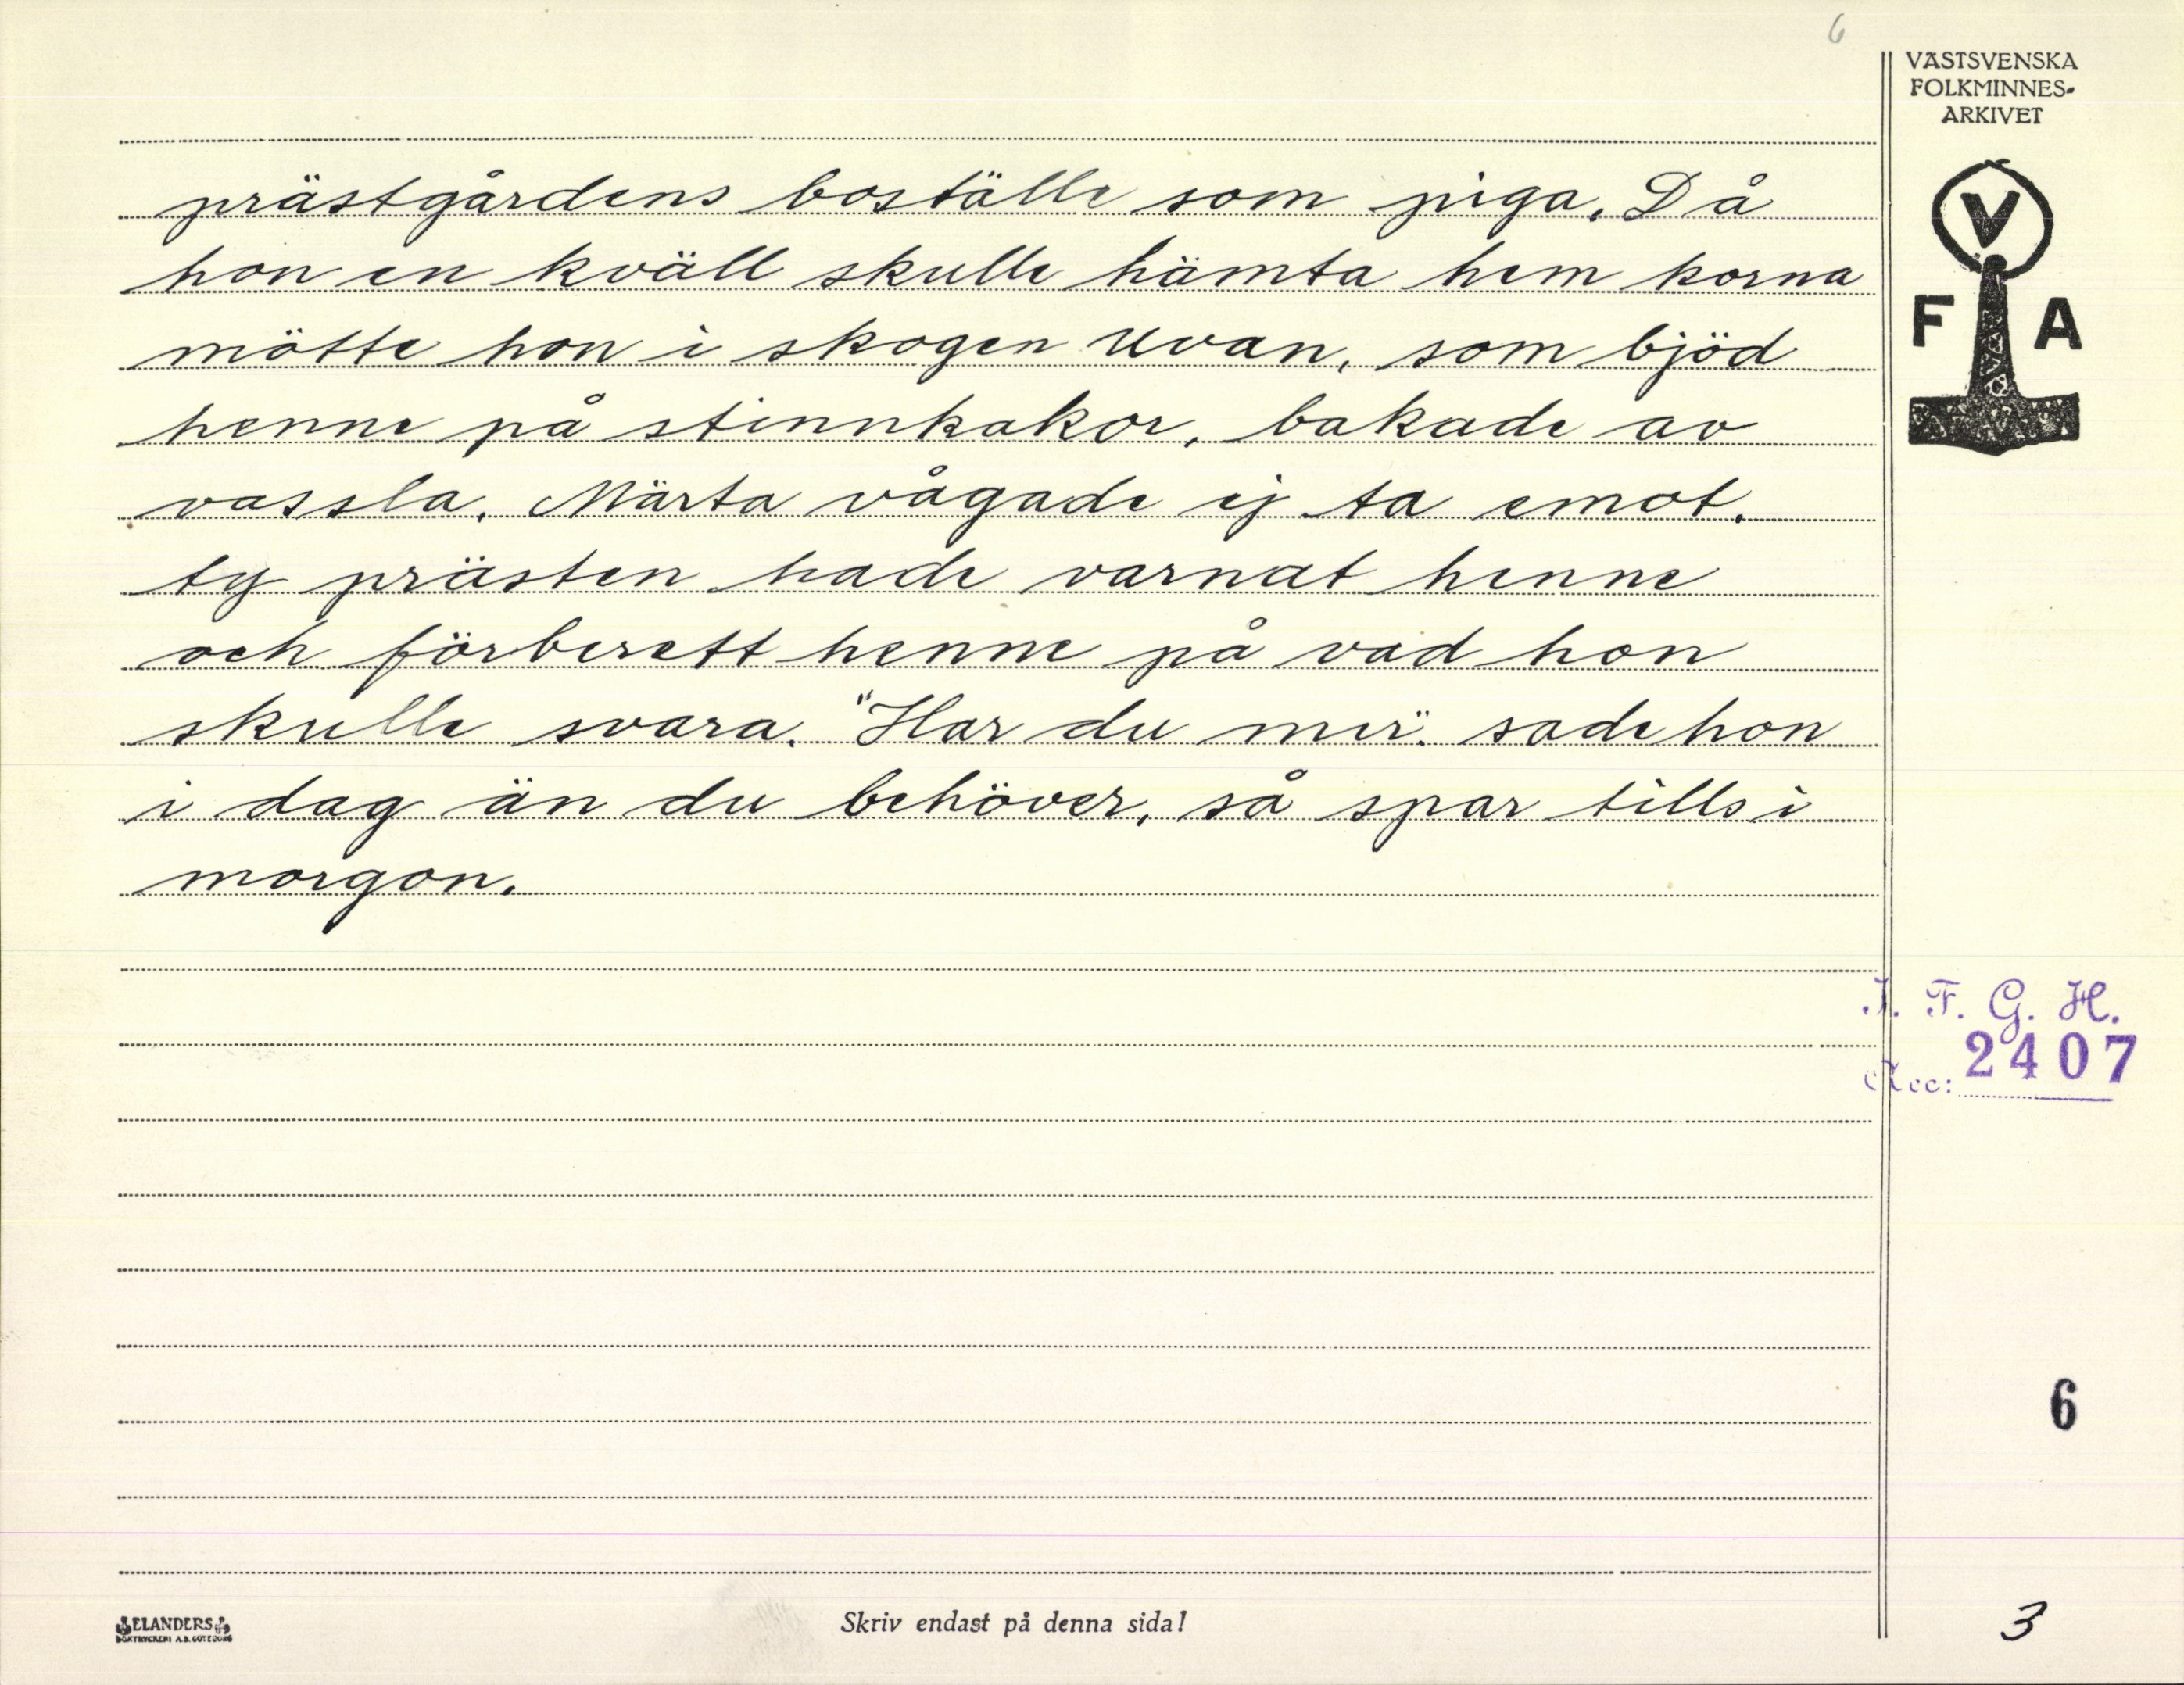 6
VÄSTSVENSKA
FOLKMINNES-
ARKIVET
V
F A
prästgårdens boställe som piga. Då
hon en kväll skulle hämta hem korna
mötte hon i skogen Uvan, som bjöd
henne på stinnkakor, bakade av
vassla. Märta vågade ej ta emot.
ty prästen hade varnat henne
och förberett henne på vad hon
skulle svara. "Har du mer". sade hon
i dag än du behöver, så spar tills i
morgon.
I. F. G. H.
Acc: 2407
6
ELANDERS
BOKTRYCKERI A.B. GÖTEBORG
Skriv endast på denna sida!
3